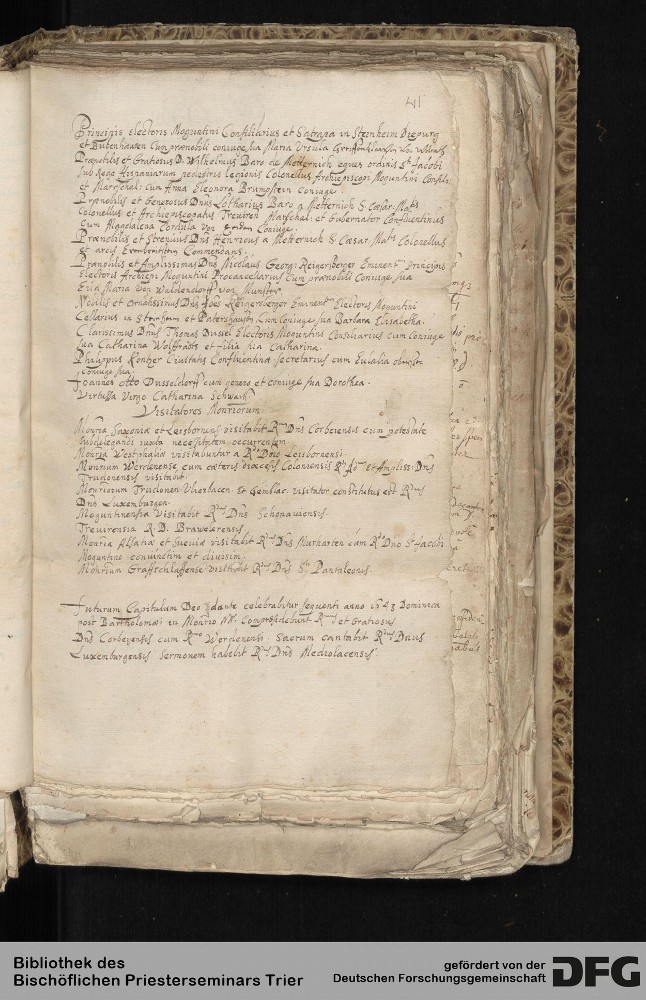 41
Principis Electoris Moguntini Consiliarius et Satrapa in Steinheim Diepurg
et Bubenhausen cum prænobili coniuge sua Maria Ursula
Prænobilis et Gratiosus D. Wilhelmus Baro de Metternich eques ordinis Sti Jacobi
sub Rege Hispaniarum pedestris legionis Colonellus Archiepiscopi Moguntini Consil:
et Marschal: cum Anna Eleonora Brumpsein Coniuge.
Prænobilis et Generosus Dnus Lotharius Baro a Metternich S. Cæsar. Matis
Colonellus et Archiepiscopatus Treviren Marschal. et Gubernator Confluentinus
Cum Magdalena Cordula von Coniuge.
Prænobilis et Strenuus Dns Henricus a Metternich S. Cæsar Matis Colonellus
et arcis Commendans.
Prænobilis et Amplissimus Dns Nicolaus Georg: Reigersberger Eminent. Principis
Electoris Archiepi Moguntini Procancellarius Cum prænobili Coniuge sua
Eua Maria von Waldendorff von Munster
Nobilis et Ornatissimus Dns Joes Reigersberger Eminent. Electoris Moguntini
Cellarius in Steinheim et Patershausen, Cum Coniuge sua Barbara Elisabetha.
Clarissimus Dnus Thomas Dussel Electoris Moguntini Consiliarius cum Coniuge
sua Catharina Wolffradts et filia sua Catharina.
Philippus Contzer Ciuitatis Confluentinæ secretarius cum Eulalia
coniuge sua.
Joannes Otto Dusseldorff cum genero et coniuge sua Dorothea.
Virtuosa Virgo Catharina Schwartz.
Visitatores Monriorum
Monria Saxoniæ et Leisbornens visitabit Rmus Dns Corbeiensis cum potestate
subdelegandi iuxta necessitatem occurrentem
Monria Westphaliæ visitabuntur a Rdo Dno Leisbornensi
Monrium Werdenense, cum cæteris diœcesis Coloniensis Rdus Adm. et Ampliss. Dns
Tuitionensis visitabit.
Monriorum Trudonen Vlierbacen. et Gemblac. visitator constitutus est Rmus
Dns Luxemburgen.
Moguntinensia Visitabit Rmus Dns Schonauiensis.
Treuirensia R. D. Brawelerensis
Monria Alsatiæ et Sueuiæ visitabit Rmus Dns Murharten cum Rdo Dno Sti Jacobi
Moguntino coniunctim et diuisim.
Monrium Graffschaffense visitabit Rmus Dns Sti Pantaleonis.
Futurum Capitulum Deo dante celebrabitur sequenti anno 1643 Dominica
post Bartholomæi in Monrio NN. Compræsidebunt Rmus et Gratiosus
Dns Corbeiensis cum Rmo Werdenensi. Sacrum cantabit Rmus Dnius
Luxemburgensis Sermonem habebit Rmus Dns Mediolacensis
Bibliothek des
Bischöflichen Priesterseminars Trier
gefördert von der
Deutschen Forschungsgemeinschaft
DFG